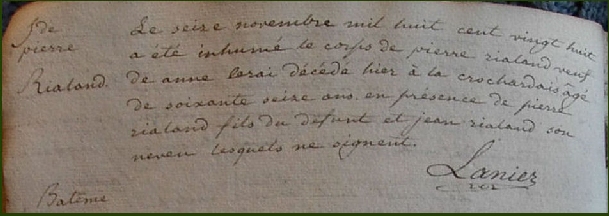 S. de
pierre
Rialand.
Le seize novembre mil huit cent vingt huit
a été inhumé le corps de pierre rialand veuf
de anne lorai décédé hier à la crochardais agé
de soixante seize ans en présence de pierre
rialand fils du defunt et jean rialand son
neveu lesquels ne signent.
Lanier
Batême